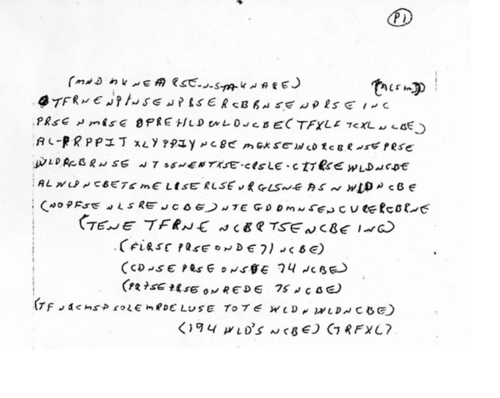 P1
(MND MKNEARSE-N-S-M-KNARE) (ACSM)
TFRNENPINSENPBSERCBBNSENPRSEINC
PRSENMRSEOPREHLDWLDNCBE(TFXLFTCXLNCBE)
AL-PRPPITXLYPPIYNCBEMGKSEWLDRCBRNSEPRSE
WLDRCBRNSENTOSNENTXSE-CRSLE-CITRSEWLDNCBE
ALWLDNCBETSMELRSERLSEURGLSNEASNWLDNCBE
(NOPFSENLSRENCBE)NTEGDDMNSENCURERCBRNE
(TENETFRNENCBRTSENCBEING)
(FLRSEPRSEONDE71NCBE)
(CDNSEPRSEONSDE74NCBE)
(PRTSEPRSEONREDE75NCBE)
(TFNQCMSPSOLEMRDELUSETOTEWLDNWLDNCBE)
(194WLD'SNCBE)(TRFXL)